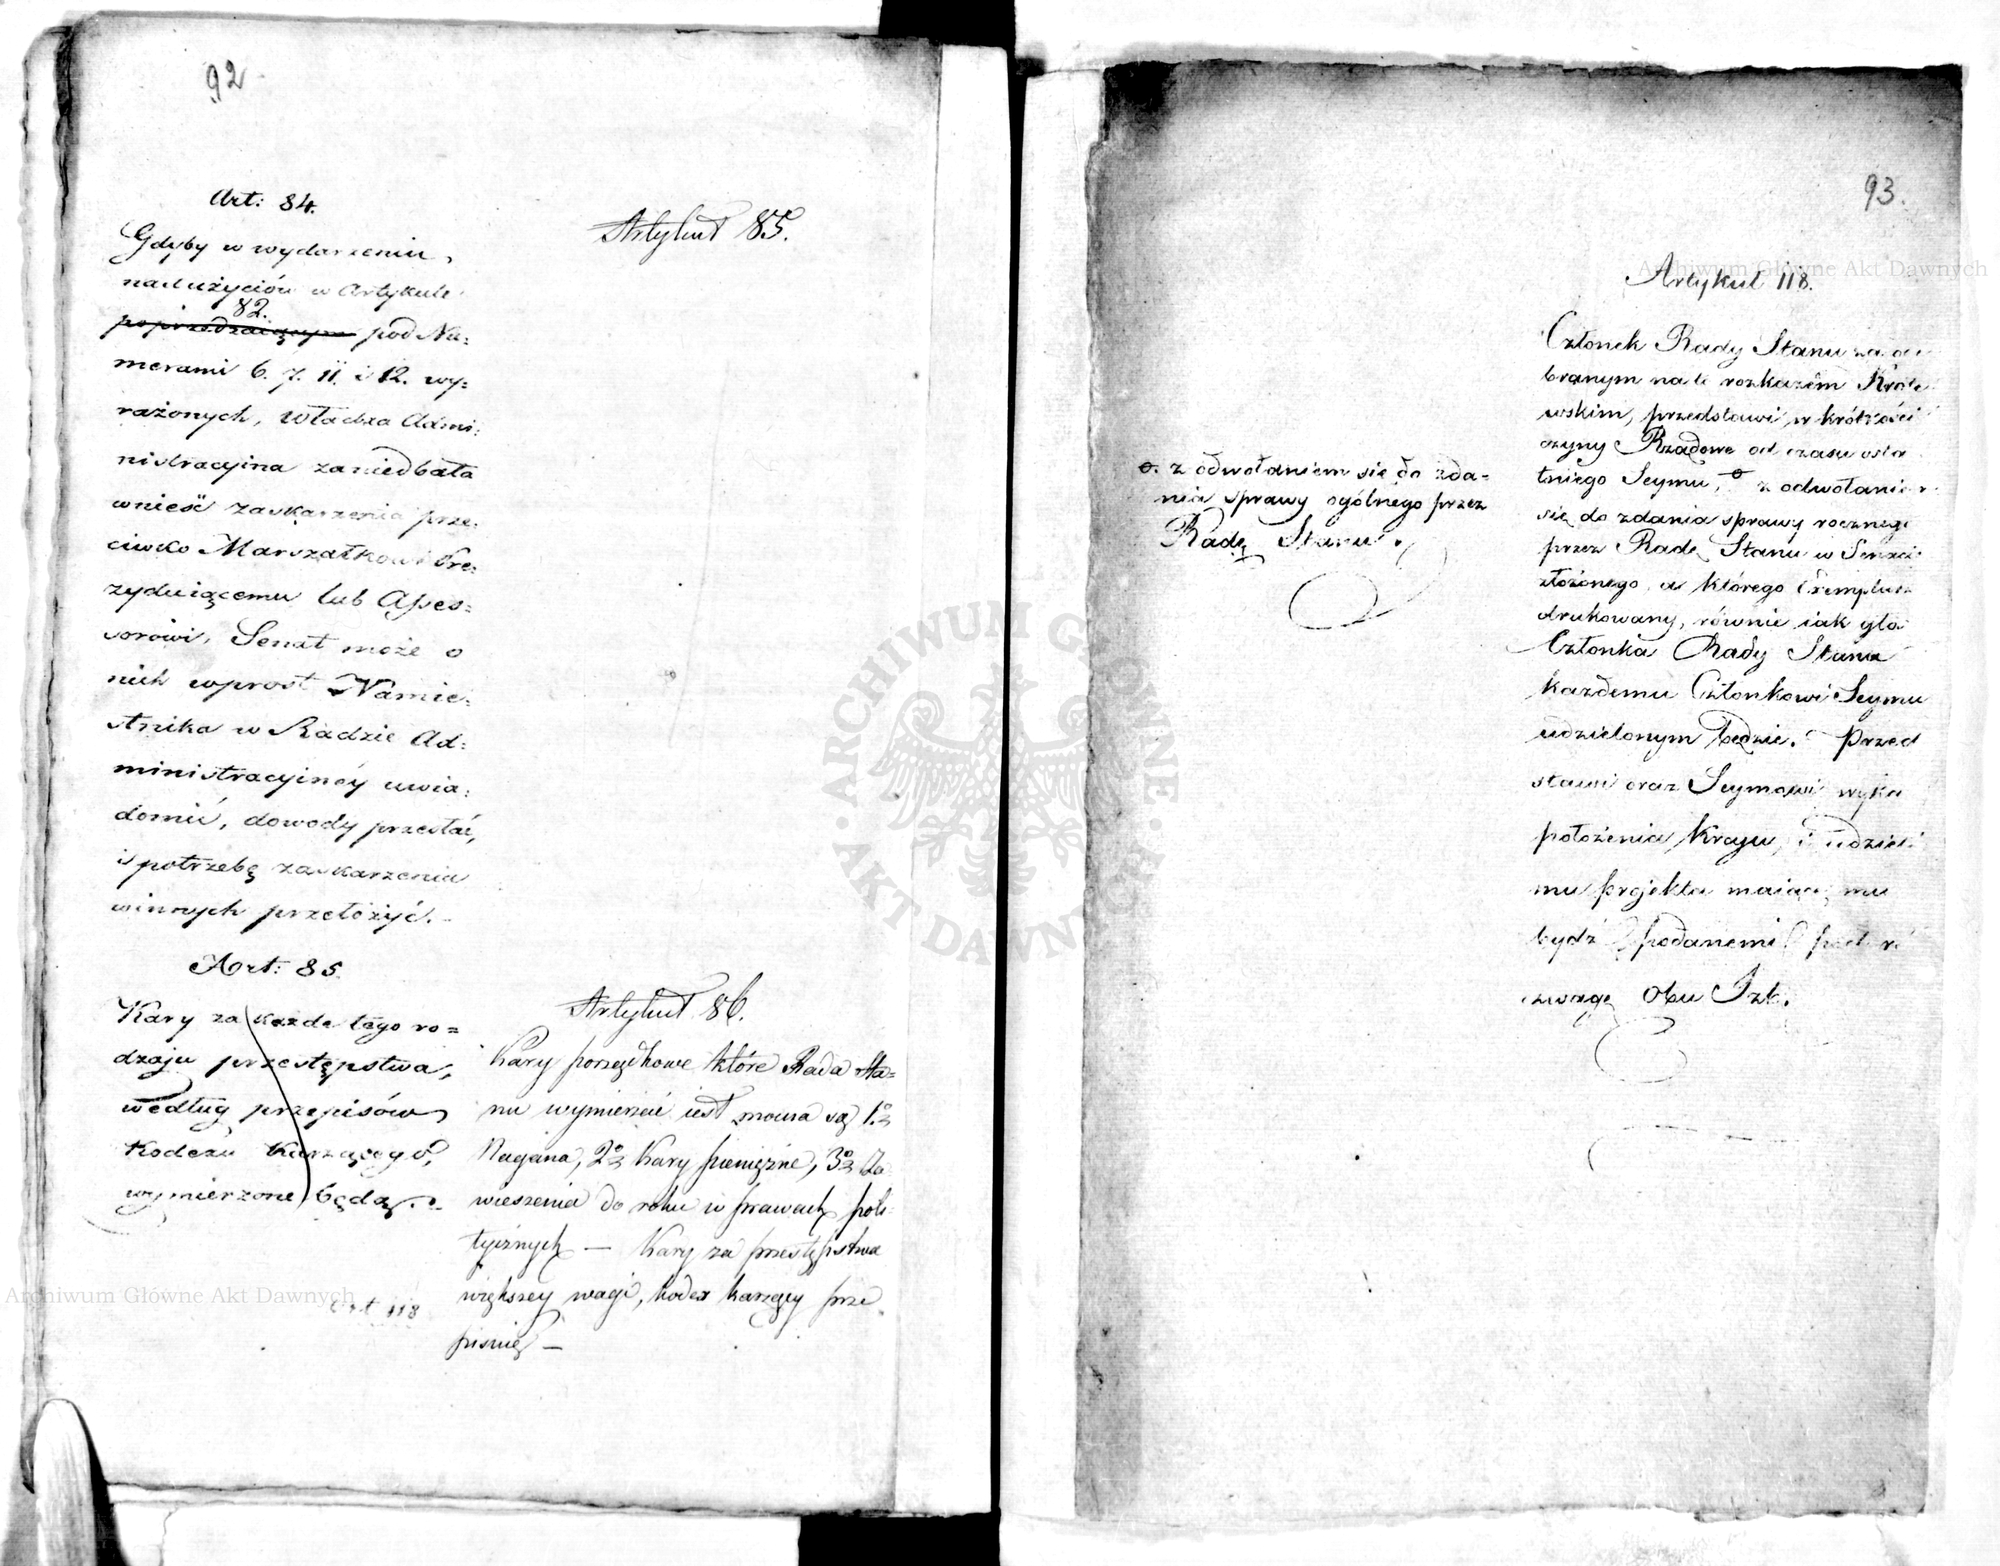 92
Art: 84.
Gdyby w wydarzeniu
nadużyciów w Artykule
82.
poprzedzaiącym pod Nu=
merami 6. 7. 11. i 12. wy=
rażonych, Władza Admi=
nistracyina zaniedbała
wnieść zaskarzenia prze=
ciwko Marszałkowi Pre=
zyduiącemu lub Asses=
sorowi, Senat może o
nich wprost Namie=
stnika w Radzie Ad=
ministracyinéy uwia=
domić, dowody przesłać,
i potrzebę zaskarzenia
winnych przełożyć.
Art: 85.
Kary za każde tego ro=
dzaju przestępstwa,
według przepisów
Kodexu Karzącego,
wymierzone będą.
Art 118
Artykuł 85.
Artykuł 86.
Kary porządkowe które Rada Sta=
nu wymierzać iest mocna są 1o
Nagana, 2o Kary pieniężne, 3o Za
wieszenia do roku w prawach poli=
tycznych — Kary za przestępstwa
większey wagi, kodex karzący prze
pisuię —
93.
Artykuł 118.
Członek Rady Stanu za
branym na to rozkazem Króle
wskim, przedstawi w krótkości
czyny Rządowe od czasu osta
tniego Seymu, z odwołaniem
się do zdania sprawy rocznego
przez Radę Stanu w Senacie
złożonego, a którego Exemplarz
drukowany, równie iak głos
Członka Rady Stanu
każdemu Członkowi Seymu
udzielonym będzie. Przed
stawi oraz Seymowi wykaz
położenia Kraju, i udzieli
mu projekta maiące mu
bydź podanemi pod ro
zwagę Obu Izb.
o. z odwołaniem się do zda=
nia sprawy ogólnego przez
Radę Stanu.
Archiwum Główne Akt Dawnych
Archiwum Główne Akt Dawnych
· ARCHIWUM GŁÓWNE · AKT DAWNYCH